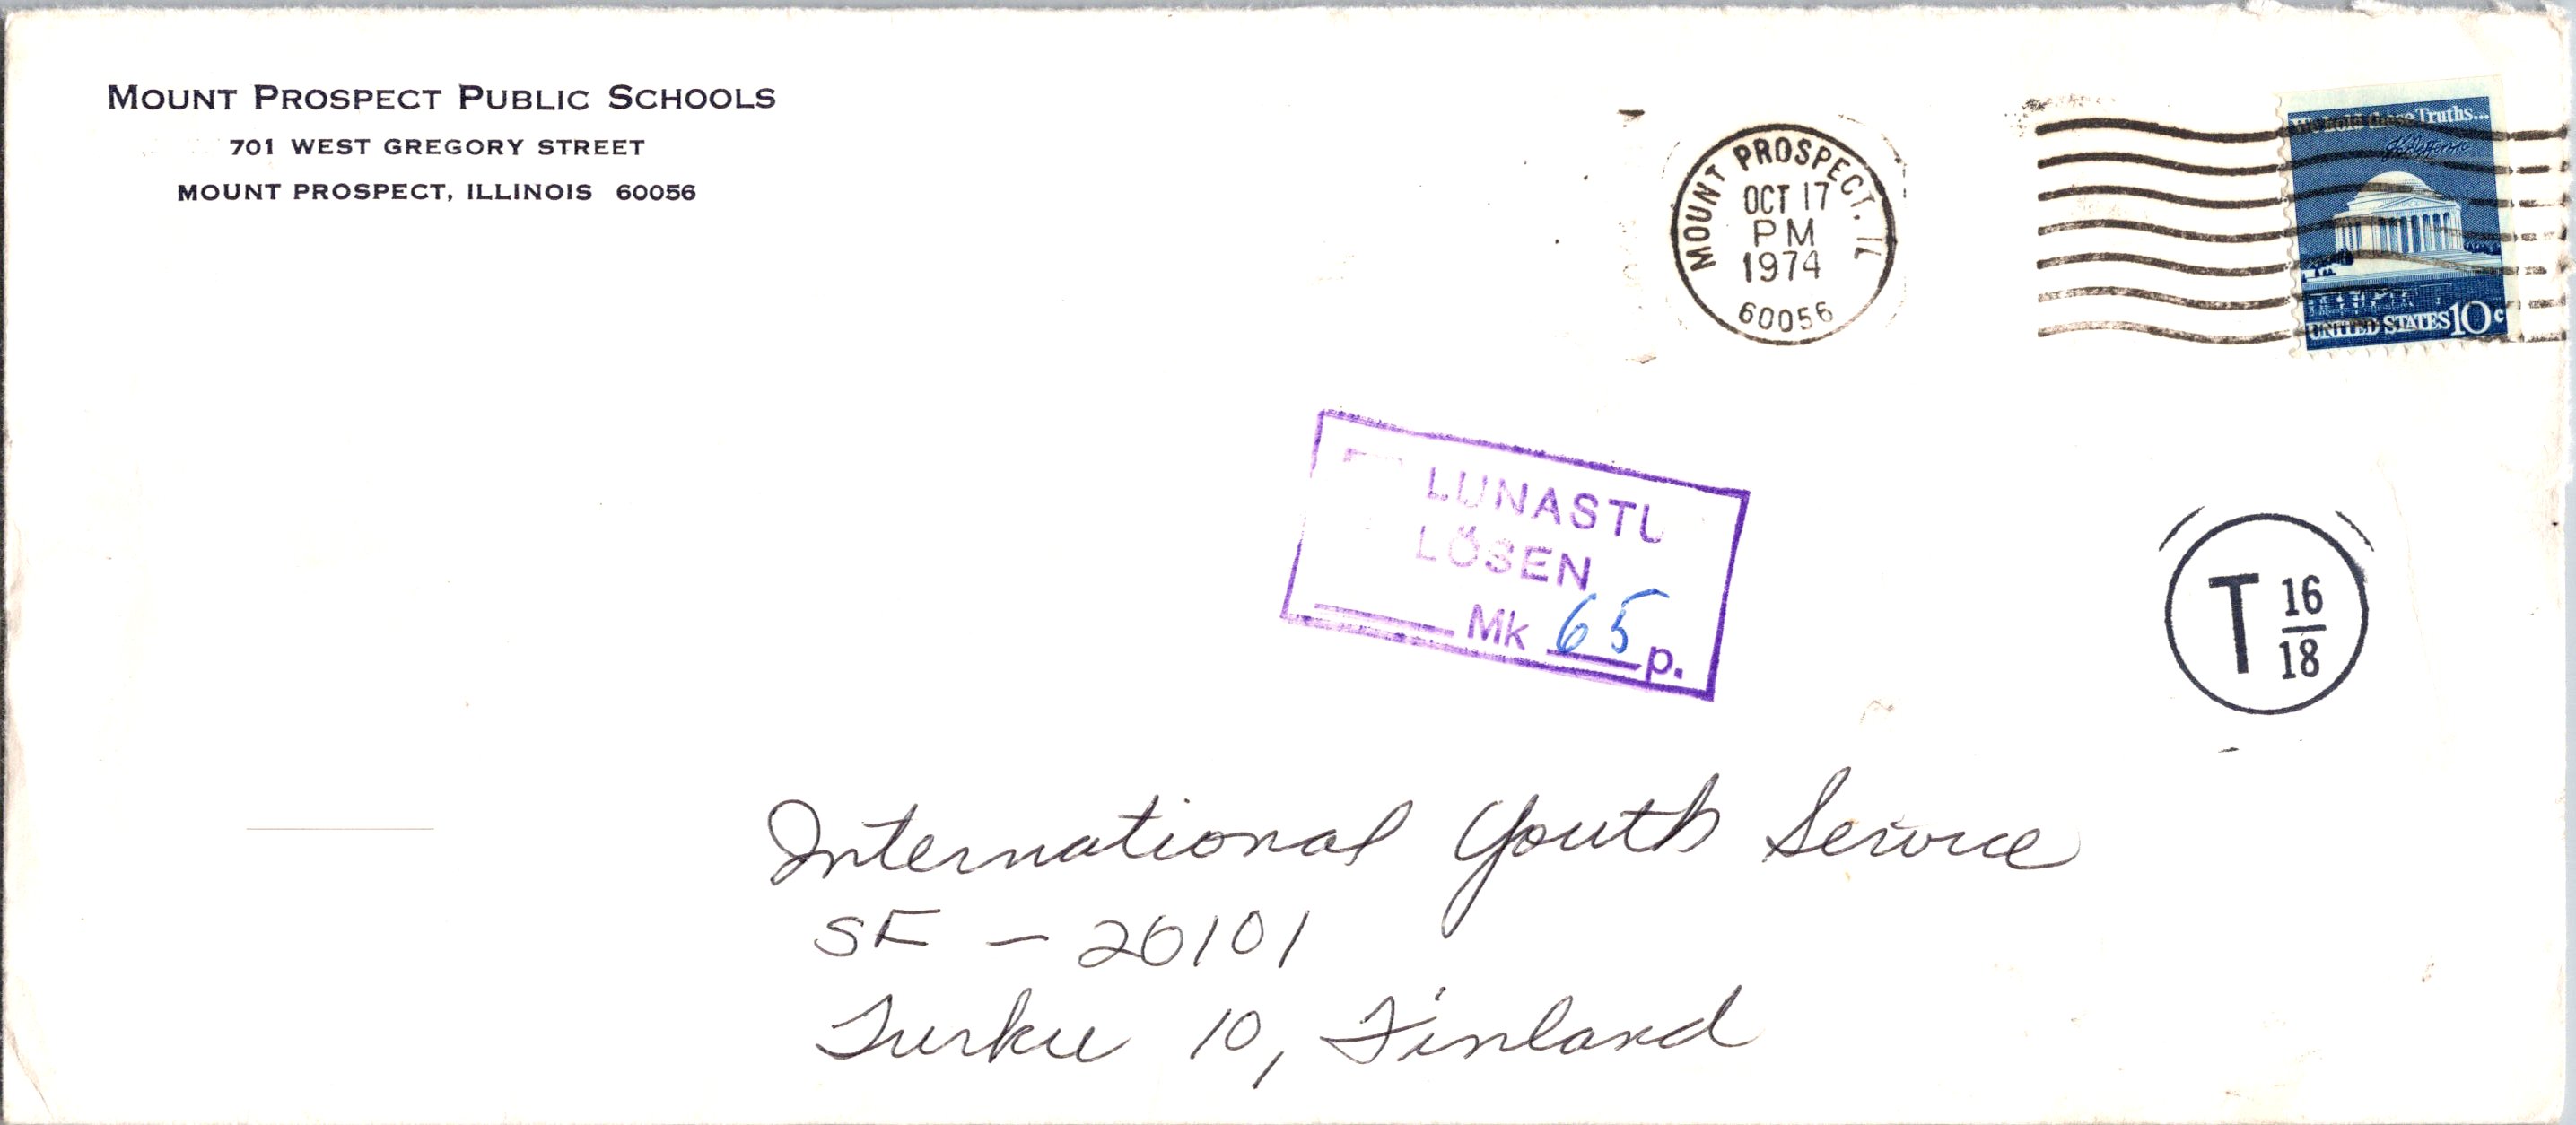 MOUNT PROSPECT PUBLIC SCHOOLS
701 WEST GREGORY STREET
MOUNT PROSPECT, ILLINOIS 60056
MOUNT PROSPECT, IL
OCT 17
PM
1974
60056
We hold these Truths...
Th Jefferson
UNITED STATES 10c
LUNASTU
LÖSEN
Mk 65 p.
T 16/18
International Youth Service
SF - 20101
Turku 10, Finland